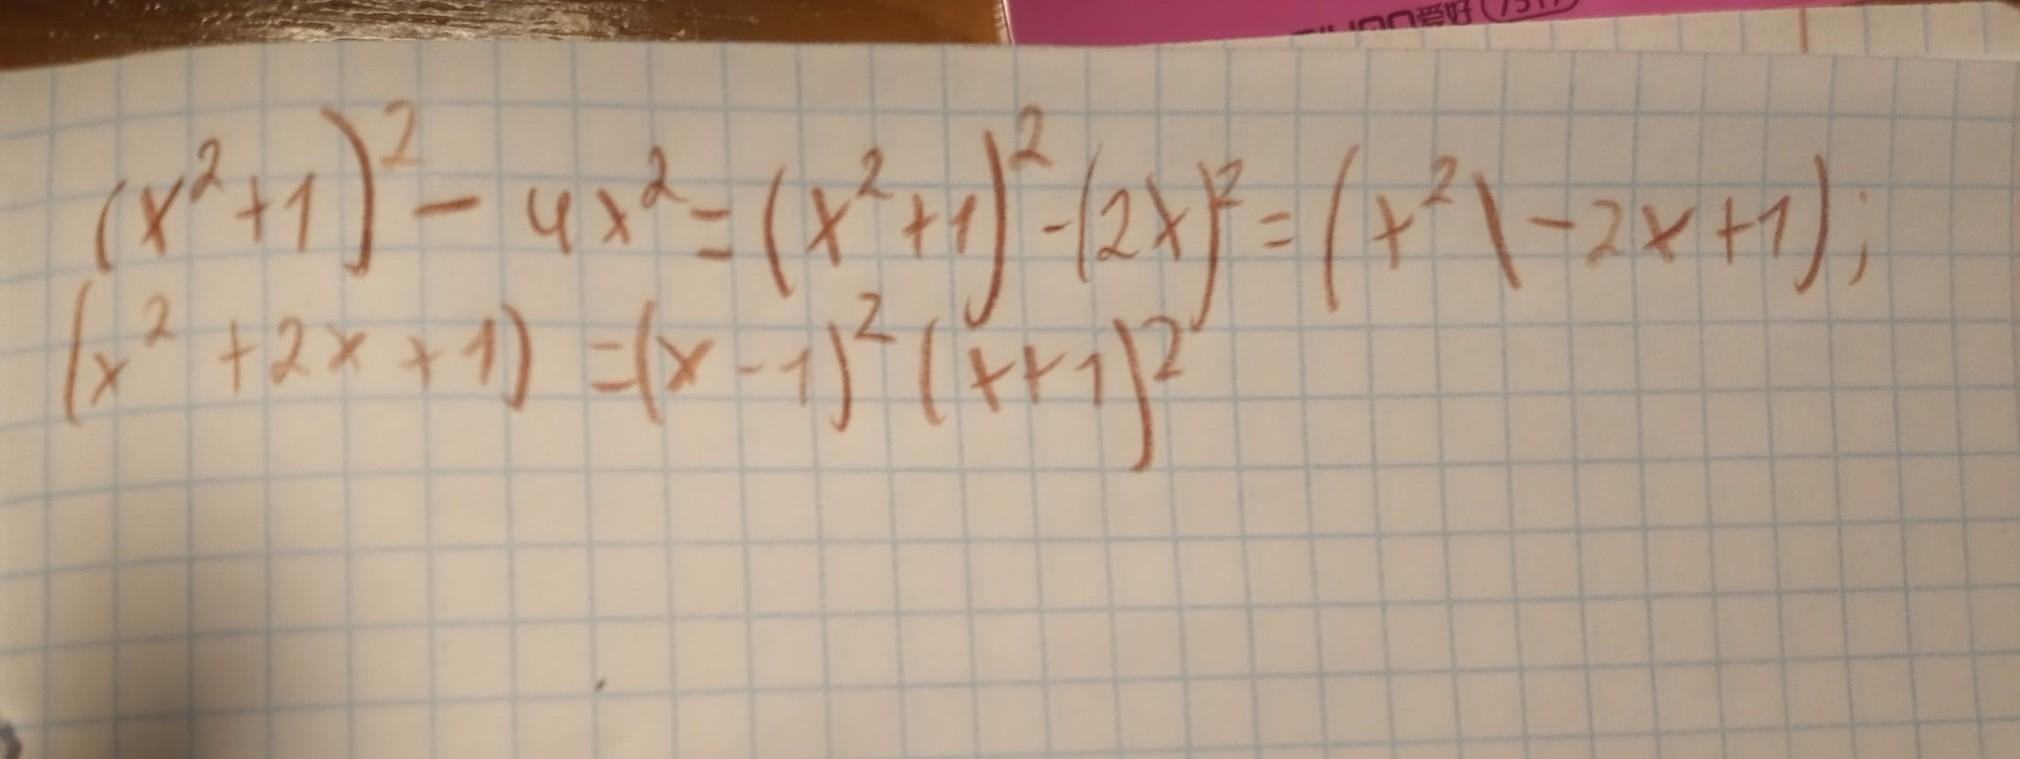 爱好
(x²+1)² - 4x² = (x²+1)² - (2x)² = (x² \ - 2x + 1);
(x² + 2x + 1) = (x - 1)² (x + 1)²